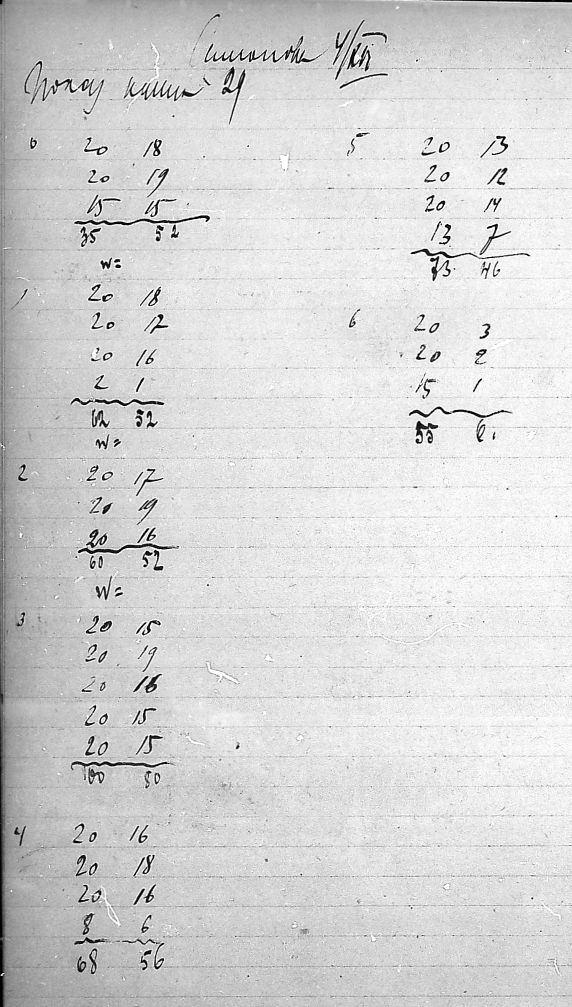 4/XII
29
0 20 18
20 19
15 15
35 52
w=
1 20 18
20 17
20 16
2 1
62 52
w=
2 20 17
20 19
20 16
60 52
w=
3 20 15
20 19
20 16
20 15
20 15
100 80
4 20 16
20 18
20 16
8 6
68 56
5 20 13
20 12
20 14
13 7
73 46
6 20 3
20 2
15 1
55 6.